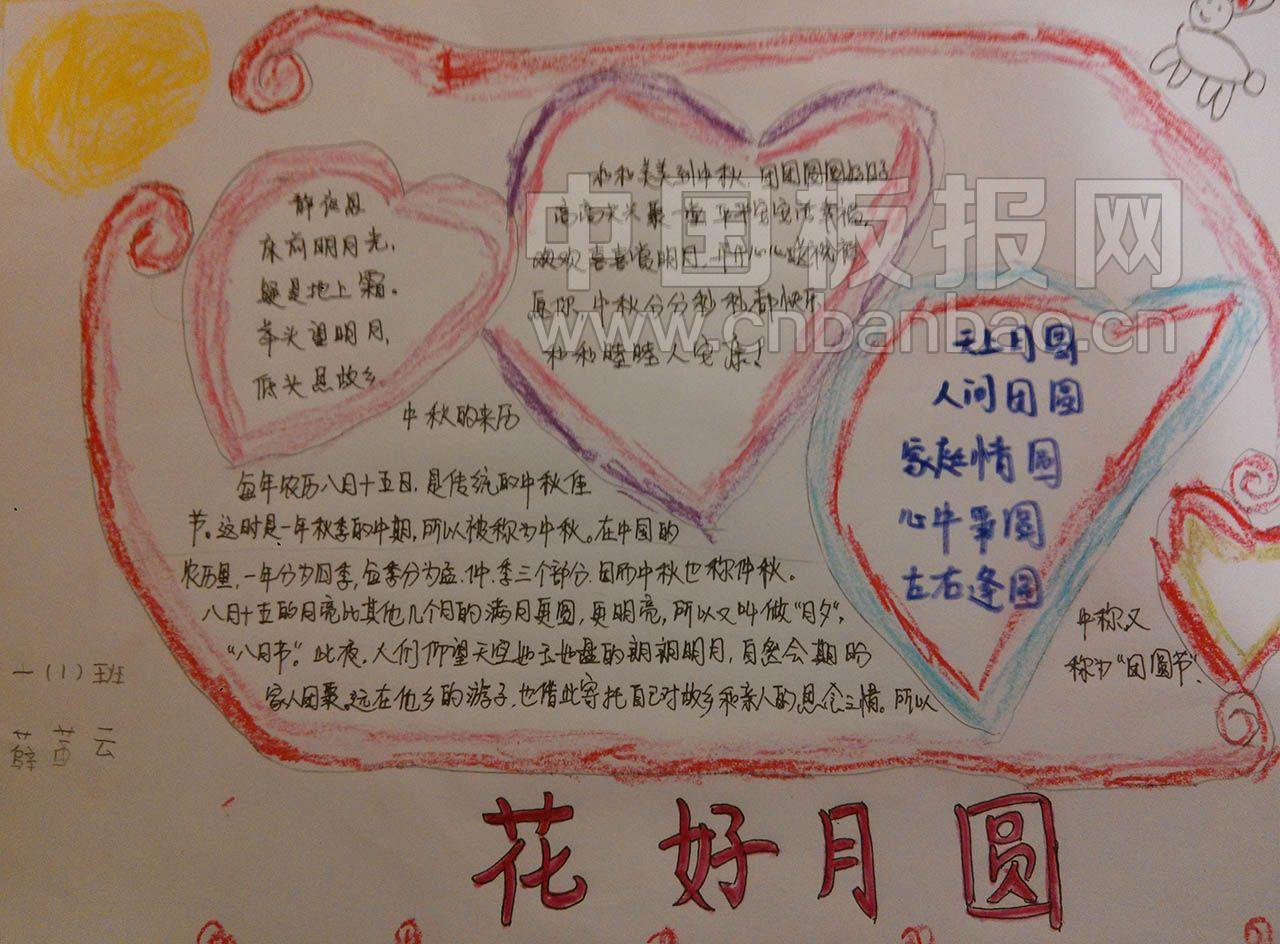 静夜思
床前明月光，
疑是地上霜。
举头望明月，
低头思故乡。
和和美美到中秋 团团圆圆好好
高高 聚一堂
欢欢喜喜赏明月，开开心心
愿你 中秋分分秒秒都快乐
和和睦睦人 乐！
中国板报网
www.cnbanbao.cn
天上月圆
人间团圆
家庭情圆
心中事圆
左右逢圆
中秋的来历
每年农历八月十五日，是传统的中秋佳
节。这时是一年秋季的中期，所以被称为中秋。在中国的
农历里，一年分为四季，每季分为孟、仲、季三个部分，因而中秋也称仲秋。
八月十五的月亮比其他几个月的满月更圆，更明亮，所以又叫做“月夕”，
“八月节”。此夜，人们仰望天空如玉如盘的朗朗明月，自然会期盼
家人团聚。远在他乡的游子，也借此寄托自己对故乡和亲人的思念之情。所以
中秋又
称为“团圆节”。
一（1）班
薛 云
花好月圆